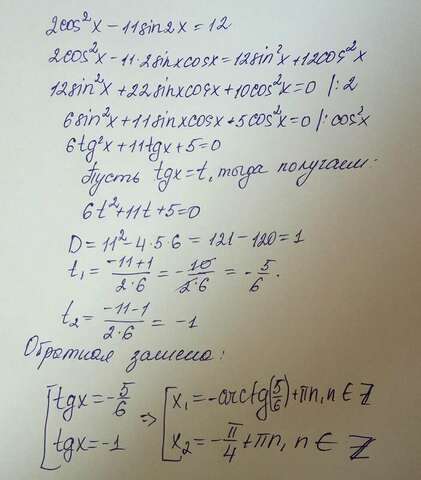 2cos²x - 11sin2x = 12
2cos²x - 11·2sinxcosx = 12sin²x + 12cos²x
12sin²x + 22sinxcosx + 10cos²x = 0 |:2
6sin²x + 11sinxcosx + 5cos²x = 0 |:cos²x
6tg²x + 11tgx + 5 = 0
Пусть tgx = t, тогда получаем:
6t² + 11t + 5 = 0
D = 11² - 4·5·6 = 121 - 120 = 1
t₁ = (-11+1)/(2·6) = -10/(2·6) = -5/6.
t₂ = (-11-1)/(2·6) = -1
Обратная замена:
[tgx = -5/6 => [x₁ = -arctg(5/6) + πn, n ∈ Z
[tgx = -1 [x₂ = -π/4 + πn, n ∈ Z